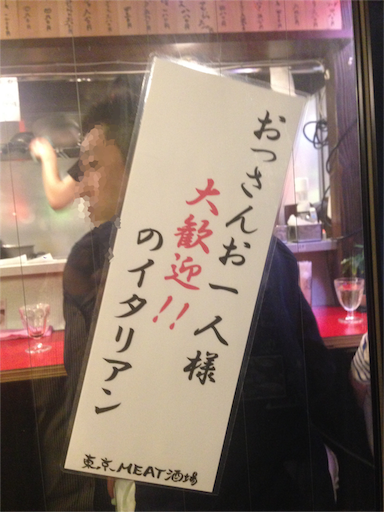 おっさんお一人様
大歓迎!!
のイタリアン
東京MEAT酒場